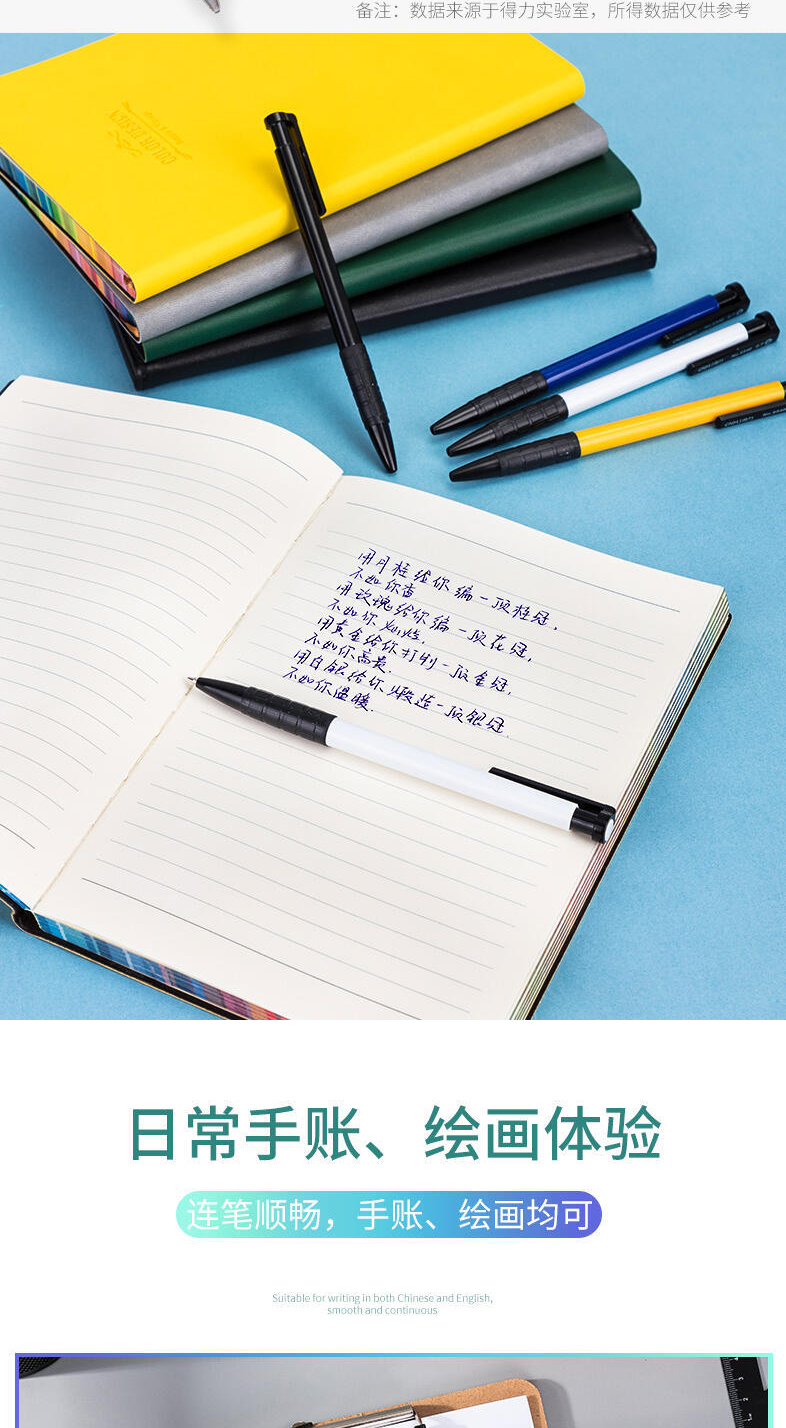 备注：数据来源于得力实验室，所得数据仅供参考
COLOR DESIGN
用月桂给你编一顶桂冠，
不如你香
用玫瑰给你编一顶花冠，
不如你灿烂，
用黄金给你打制一顶金冠，
不如你高贵.
用白银给你煅造一顶银冠
不如你温暖.
日常手账、绘画体验
连笔顺畅，手账、绘画均可
Suitable for writing in both Chinese and English,
smooth and continuous